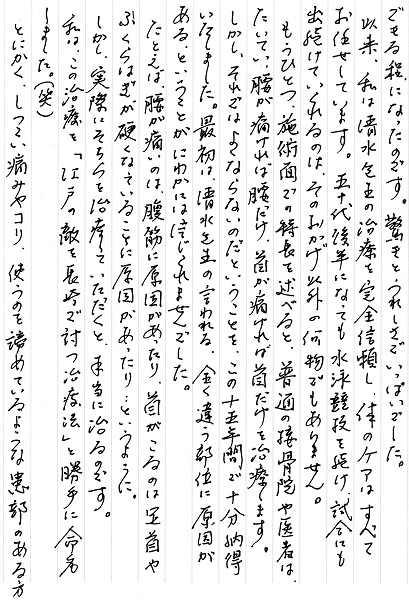 できる程になったのです。驚きとうれしさでいっぱいでした。
以来、私は清水先生の治療を完全信頼し、体のケアはすべて
お任せしています。五十代後半になっても水泳競技を続け、試合にも
出続けていられるのは、そのおかげ以外の何物でもありません。
もうひとつ、施術面での特長を述べると、普通の接骨院や医者は、
たいてい、腰が痛ければ腰だけ、首が痛ければ首だけを治療します。
しかし、それではよくならないのだということを、この十五年間で十分納得
いたしました。最初は、清水先生の言われる、全く違う部位に原因が
ある、ということがにわかには信じられませんでした。
たとえば腰が痛いのは、腹筋に原因があったり、首がこるのは足首や
ふくらはぎが硬くなっていることに原因があったり…というように。
しかし、実際にそちらを治療していただくと、本当に治るのです。
私は、この治療を「江戸の敵を長崎で討つ治療法」と勝手に命名
しました。(笑)
とにかく、しつこい痛みやコリ、使うのを諦めているような患部のある方